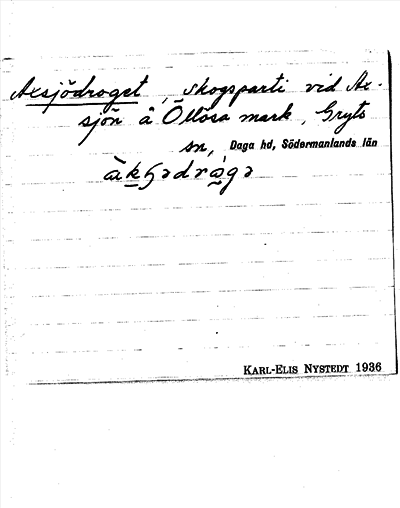 Axsjödroget, skogsparti vid Ax-
sjön å Öllösa mark, Gryts
sn, Daga hd, Södermanlands län
àk̠ɧədrá̰gə
KARL-ELIS NYSTEDT 1936